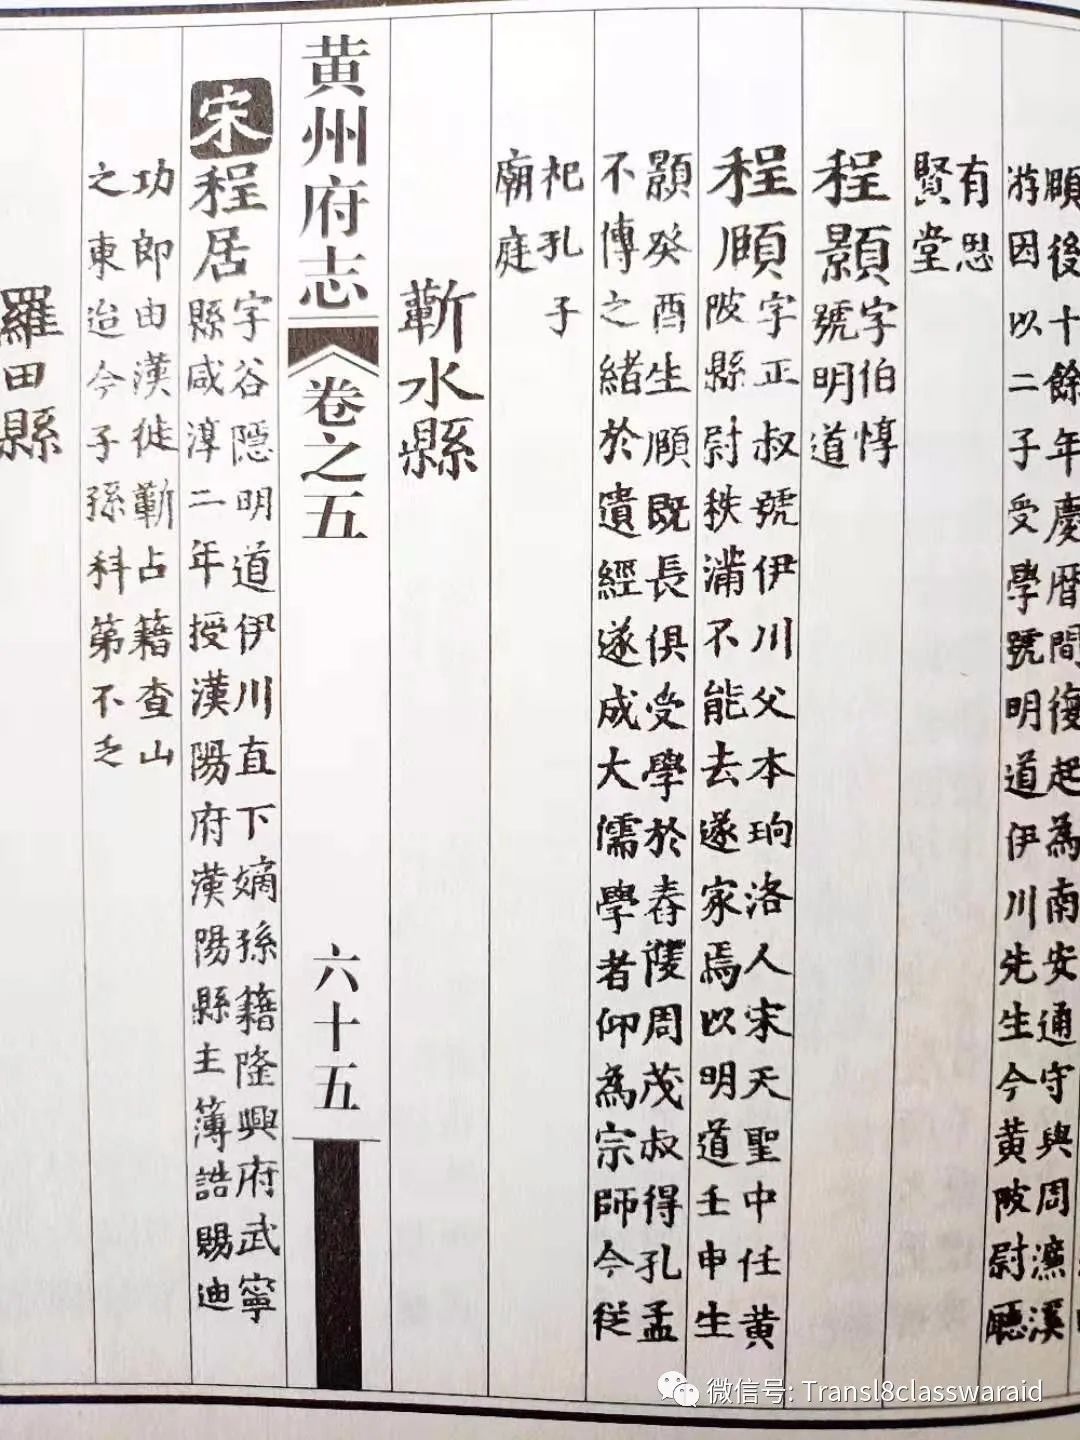 頤後十餘年慶曆間復起為南安通守與周濂溪
游因以二子受學號明道伊川先生今黃陂尉廳
有思
賢堂
程顥
字伯惇
號明道
程頤
字正叔號伊川父本珦洛人宋天聖中任黃
陂縣尉秩滿不能去遂家焉以明道壬申生
顥癸酉生頤既長俱受學於舂陵周茂叔得孔孟
不傳之緒於遺經遂成大儒學者仰為宗師今從
祀孔子
廟庭
蘄水縣
黄州府志 卷之五 六十五
宋 程居
字谷隱明道伊川直下嫡孫籍隆興府武寧
縣咸淳二年授漢陽府漢陽縣主簿誥賜迪
功郎由漢徙蘄占籍查山
之東迨今子孫科第不乏
羅田縣
微信号: Transl8classwaraid